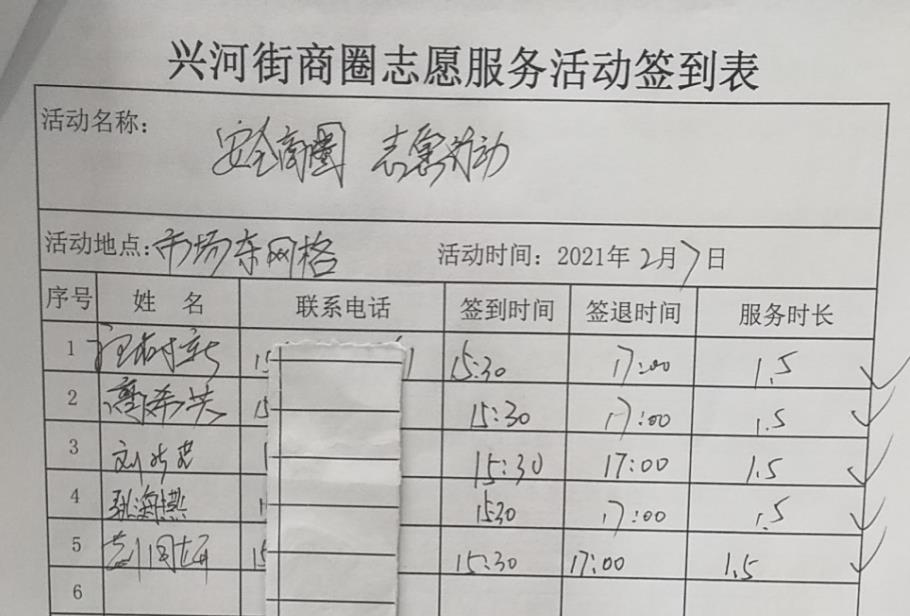 兴河街商圈志愿服务活动签到表
活动名称: 安全商圈 志愿活动
活动地点:市场东网格 活动时间: 2021年2月7日
序号 姓名 联系电话 签到时间 签退时间 服务时长
1 15 15:30 17:00 1.5
2 15 15:30 17:00 1.5
3 15:30 17:00 1.5
4 张海燕 1530 17:00 1.5
5 15 15:30 17:00 1.5
6